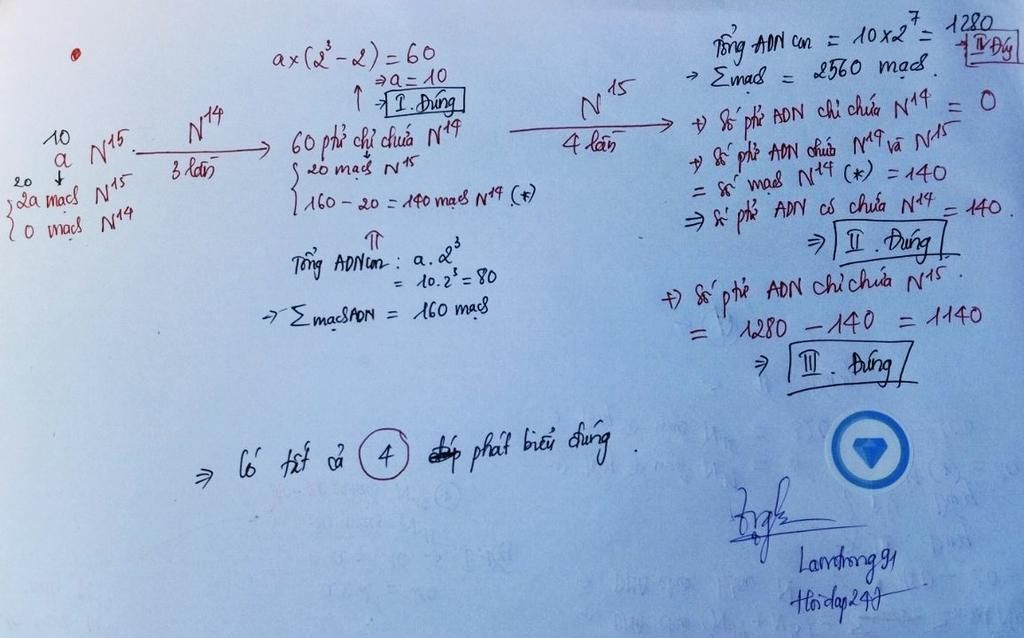 10
a N¹⁵
20
2a mạch N¹⁵
0 mạch N¹⁴
N¹⁴
3 lần
a×(2³−2) = 60
⇒ a = 10
→ I. Đúng
60 ptử chỉ chứa N¹⁴
20 mạch N¹⁵
160 − 20 = 140 mạch N¹⁴ (*)
Tổng ADN con : a.2³
= 10.2³ = 80
→ Σmạch ADN = 160 mạch
N¹⁵
4 lần
Tổng ADN con = 10×2⁷ = 1280
→ IV Đúng
→ Σmạch = 2560 mạch.
+) Số ptử ADN chỉ chứa N¹⁴ = 0
+) Số ptử ADN chứa N¹⁴ và N¹⁵
= số mạch N¹⁴ (*) = 140
⇒ Số ptử ADN có chứa N¹⁴ = 140.
⇒ II. Đúng
+) Số ptử ADN chỉ chứa N¹⁵.
= 1280 − 140 = 1140
⇒ III. Đúng
⇒ Có tất cả 4 phát biểu đúng.
Lamtrong91
Hoidap247